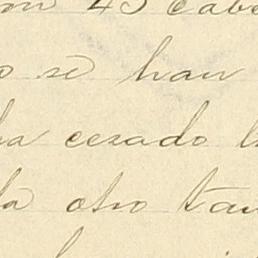 on 45 cabe
o se han
ha cesado l
la otro tan